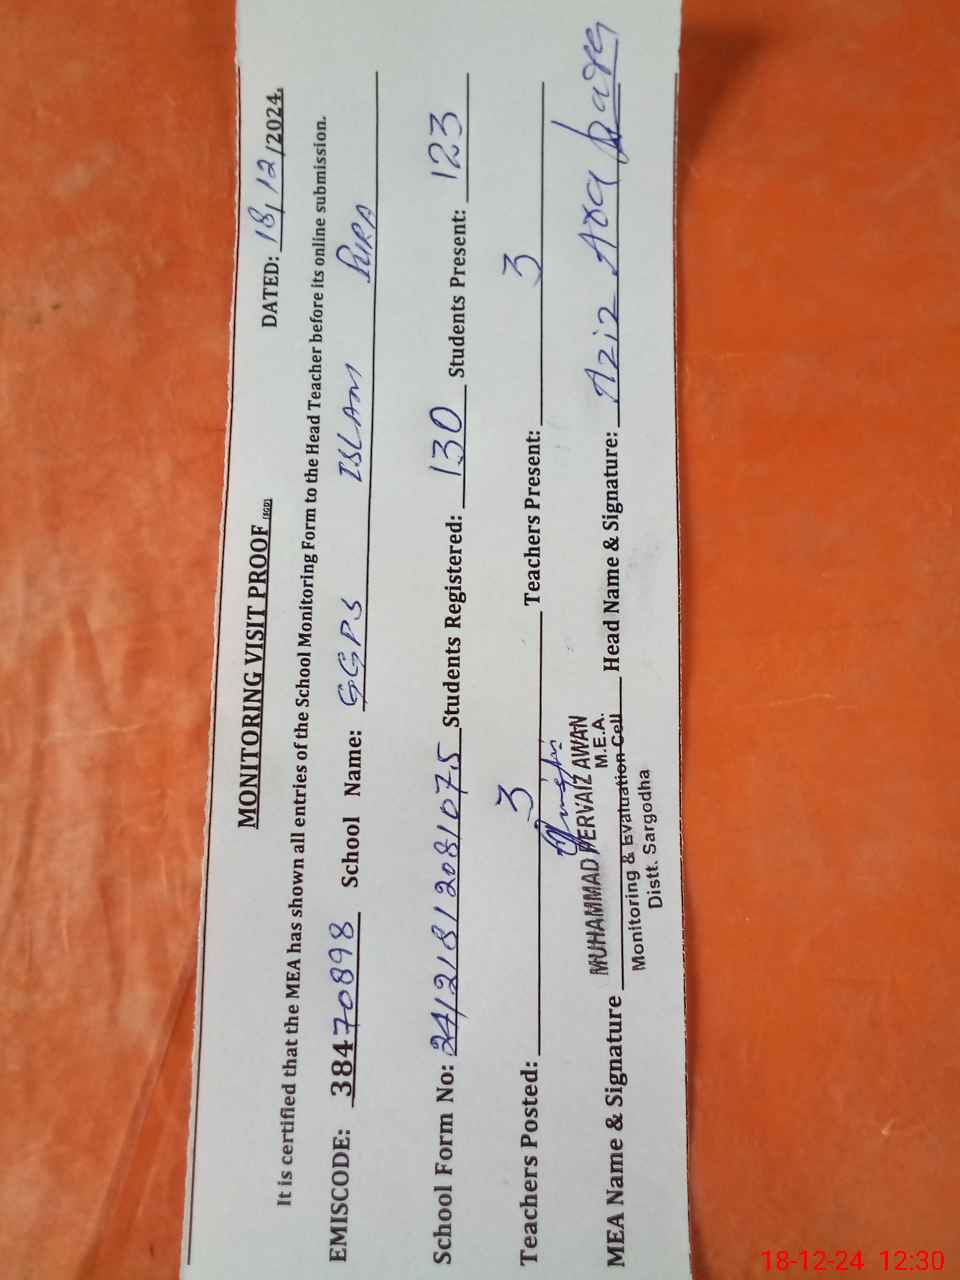 MONITORING VISIT PROOF
DATED: 18/12/2024.
It is certified that the MEA has shown all entries of the School Monitoring Form to the Head Teacher before its online submission.
EMISCODE: 38470898 School Name: GGPS ISLAM PURA
School Form No: Students Registered: 130 Students Present: 123
Teachers Posted: 3 Teachers Present: 3
MUHAMMAD PERVAIZ AWAN
M.E.A.
MEA Name & Signature Head Name & Signature: Aziz
Monitoring & Evaluation Cell
Distt. Sargodha
18-12-24 12:30